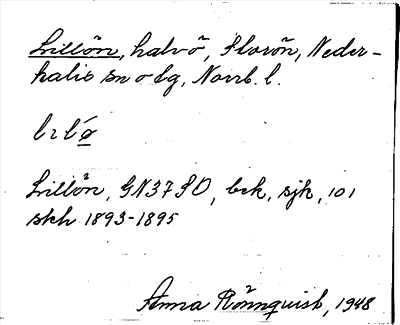 Lillön, halvö, Storön, Neder-
kalix sn o tg, Norrb. l.
Lillön, GN37SO, bek, sjk, 101
skh 1893-1895
Anna Rönnquist, 1948